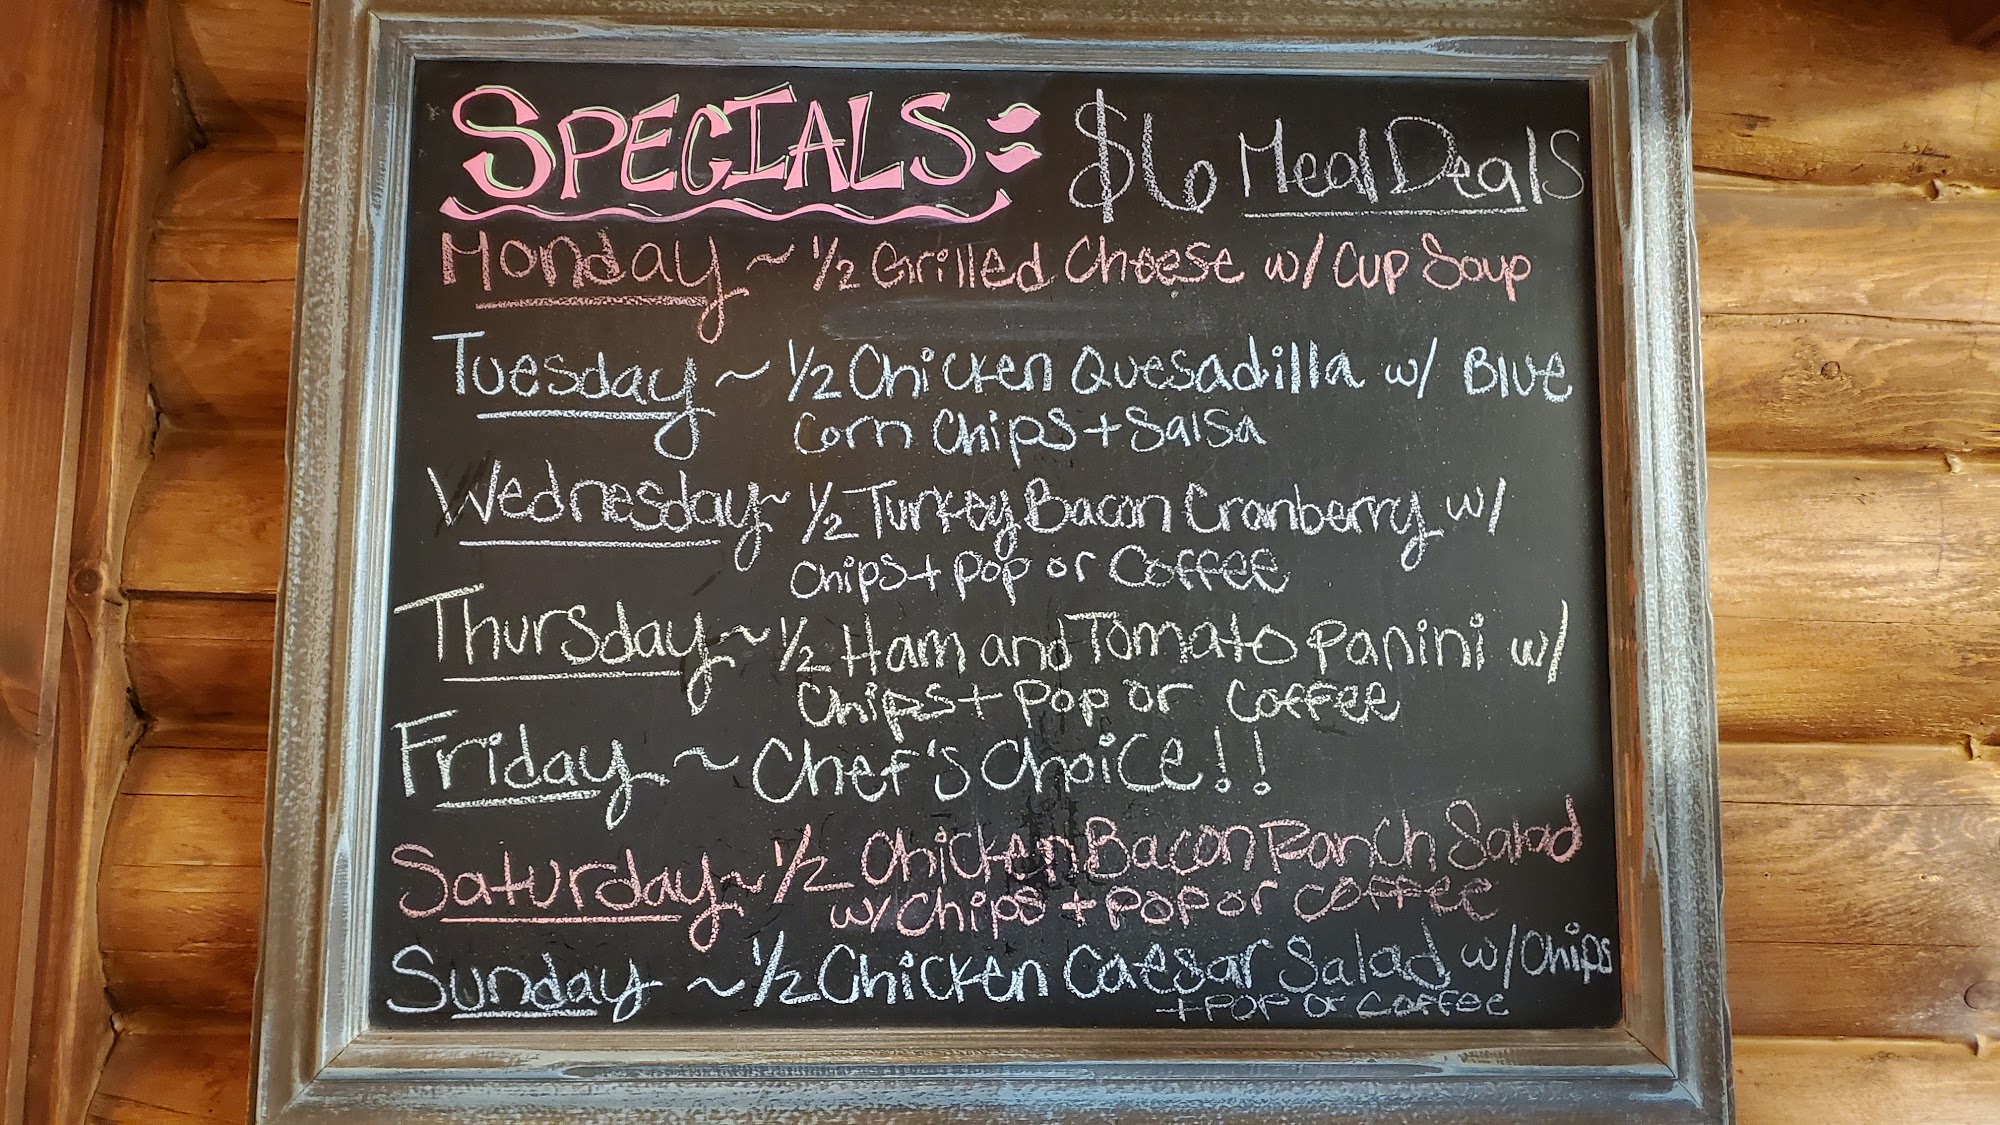 SPECIALS: $6 Meal Deals
Monday ~ 1/2 Grilled Cheese w/ Cup Soup
Tuesday ~ 1/2 Chicken Quesadilla w/ Blue
Corn Chips + Salsa
Wednesday ~ 1/2 Turkey Bacon Cranberry w/
Chips + Pop or Coffee
Thursday ~ 1/2 Ham and Tomato Panini w/
Chips + Pop or Coffee
Friday ~ Chef's Choice!!
Saturday ~ 1/2 Chicken Bacon Ranch Salad
w/ Chips + Pop or Coffee
Sunday ~ 1/2 Chicken Caesar Salad w/ Chips
+ Pop or Coffee